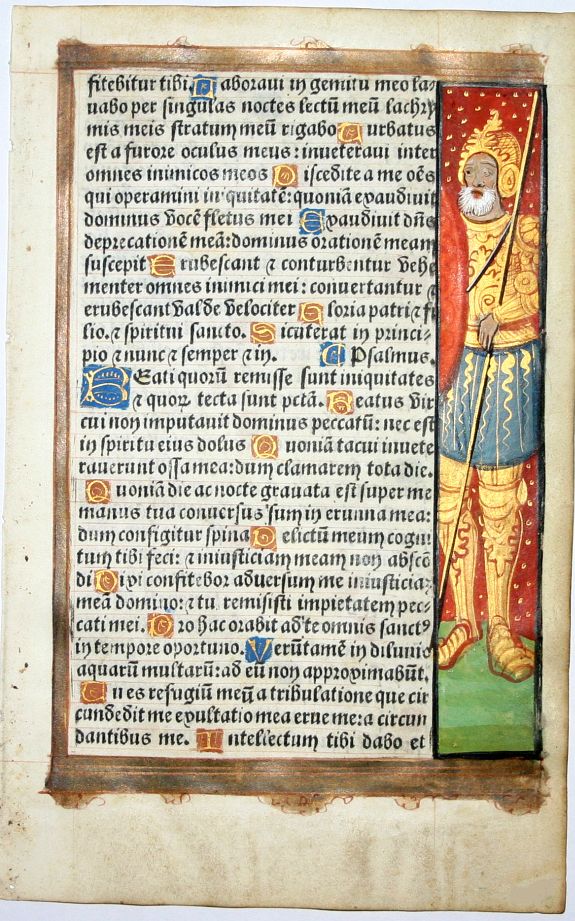 fitebitur tibi. Laboraui in gemitu meo la⸗
uabo per singulas noctes lectū meū lachry
mis meis stratum meū rigabo Turbatus
est a furore oculus meus: inueteraui inter
omnes inimicos meos Discedite a me oēs
qui operamini iniquitatē: quoniā exaudiuit
dominus vocē fletus mei Exaudiuit dn̄s
deprecationē meā: dominus orationē meam
suscepit Erubescant ⁊ conturbentur vehe
menter omnes inimici mei: conuertantur ⁊
erubescant valde velociter Gloria patri ⁊ fi
lio. ⁊ spiritui sancto. Sicut erat in princi⸗
pio ⁊ nunc ⁊ semper ⁊ in. Psalmus.
BEati quorū remisse sunt iniquitates
⁊ quoꝝ tecta sunt pctā. Beatus vir
cui non imputauit dominus peccatū: nec est
in spiritu eius dolus Quoniā tacui inuete
rauerunt ossa mea: dum clamarem tota die.
Quoniā die ac nocte grauata est super me
manus tua conuersus sum in erunna mea:
dum configitur spina Delictū meum cogni
tum tibi feci: ⁊ iniusticiam meam non abscō
di Dixi confitebor aduersum me iniusticiā
meā domino: ⁊ tu remisisti impietatem pec⸗
cati mei. Pro hac orabit ad te omnis sanctꝰ
in tempore oportuno. Verūtamē in diluuio
aquarum multarū: ad eū non approximabūt.
Tu es refugiū meū a tribulatione que cir
cundedit me exultatio mea erue me: a circun
dantibus me. Intellectum tibi dabo et